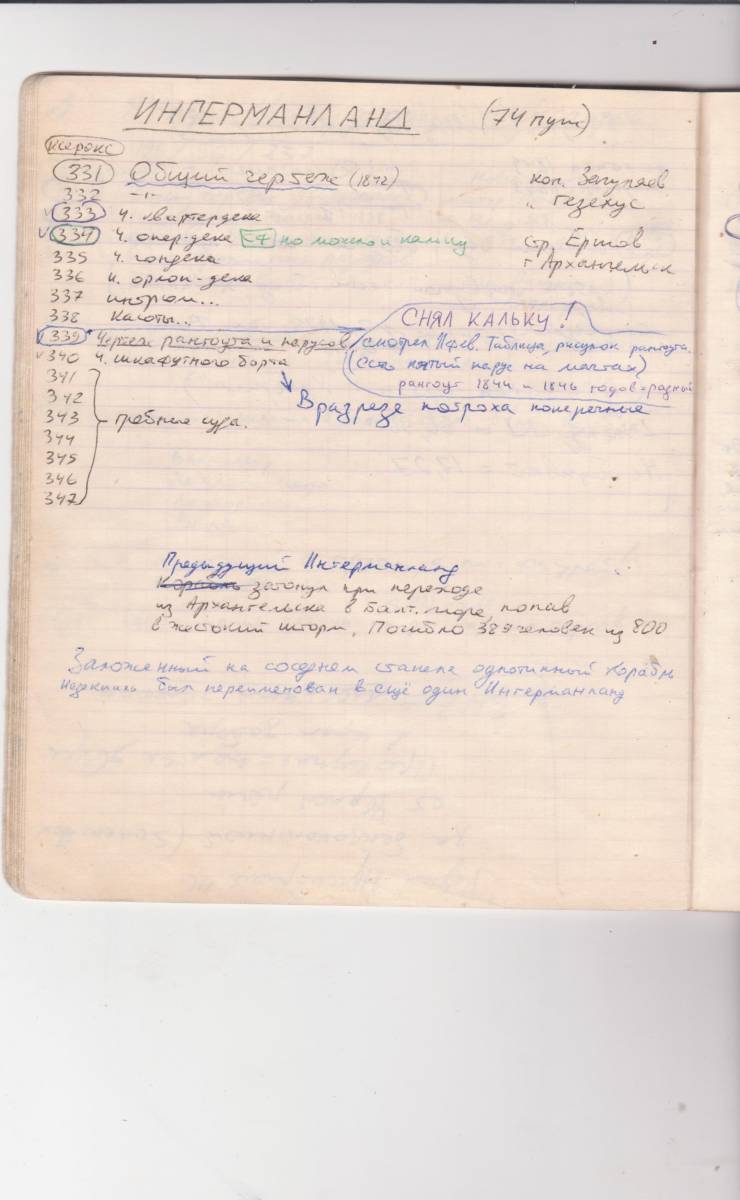 ИНГЕРМАНЛАНД (74 пуш)
ксерокс
331 Общий чертеж (1842) коп. Загуляев
332 -"- " Гезехус
√ 333 ч. квартердека
√ 334 ч. опер-дека но можно и кальку стр. Ершов
335 ч. гондека г Архангельск
336 ч. орлоп-дека
337 интрюм...
338 каюты...
СНЯЛ КАЛЬКУ!
339 Чертеж рангоута и парусов смотрел 11 фев. Таблица, рисунок рангоута.
√ 340 ч. шкафутного борта (Есть пятый парус на мачтах)
рангоут 1844 и 1846 годов - разный
341
342 В разрезе потроха поперечные
343 гребные суда.
344
345
346
347
Предыдущий Ингерманланд
Корабль затонул при переходе
из Архангельска в Балт. море, попав
в жестокий шторм. Погибло 389 человек из 800
Заложенный на соседнем стапеле однотипный корабль
Иезекииль был переименован в ещё один Ингерманланд